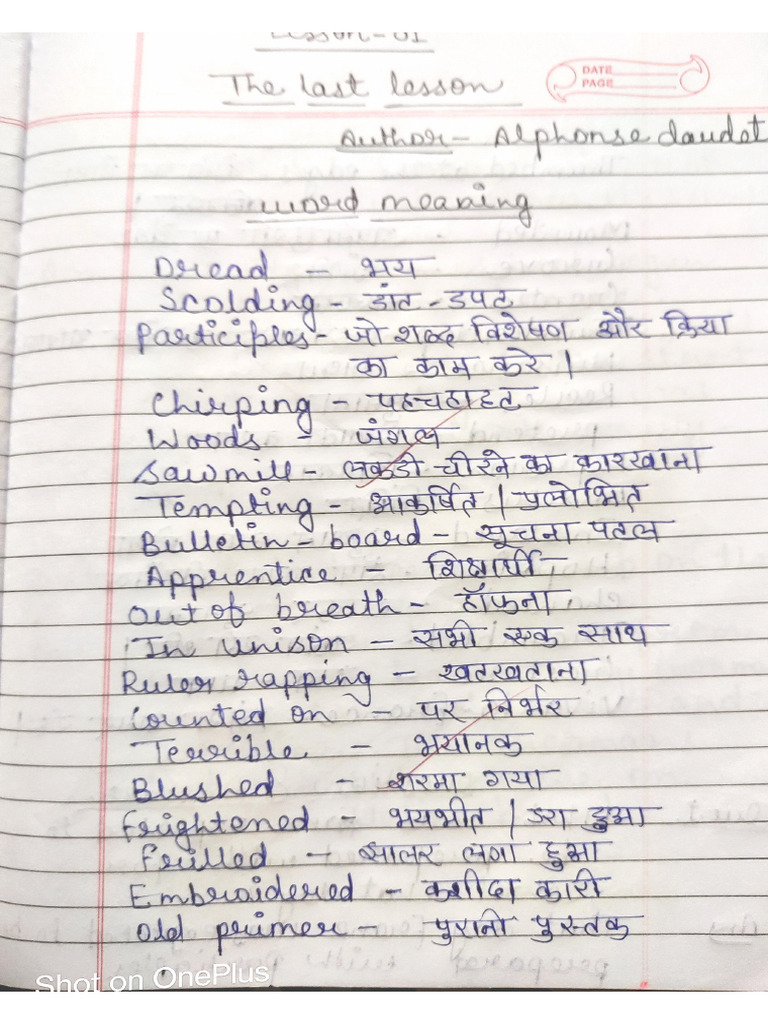 Lesson-01
The last lesson
DATE
PAGE
Author - Alphonse daudet
word meaning
Dread - भय
Scolding - डांट-डपट
Participles - जो शब्द विशेषण और क्रिया
का काम करे।
Chirping - पहचहाहट
Woods - जंगल
Sawmill - लकडी चीरने का कारखाना
Tempting - आकर्षित / प्रलोभित
Bulletin-board - सूचना पतल
Apprentice - शिक्षार्थी
Out of breath - हॉफना
In unison - सभी एक साथ
Ruler rapping - खतखताना
Counted on - पर निर्भर
Terrible - भयानक
Blushed - शरमा गया
frightened - भयभीत / डरा हुआ
frilled - झालर लगा हुआ
Embroidered - कशीदा कारी
Old primer - पुरानी पुस्तक
Shot on OnePlus